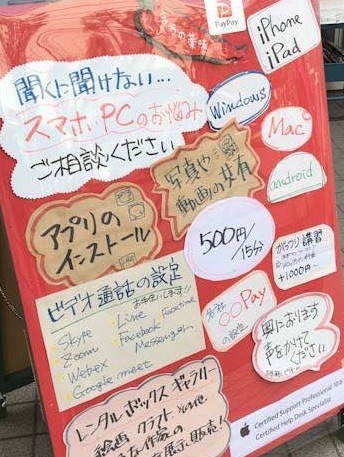 PayPay
iPhone
iPad
聞くに聞けない…
スマホ・PCのお悩み
ご相談ください
Windows
Mac
android
写真や
動画の共有
アプリの
インストール
500円/
15分
がっつり講習
+1000円~
ビデオ通話の設定
お手伝いします!!
Skype
Zoom
Webex
Google meet
Line
Facebook
Messenger
Facetime
各社
○○Pay
の設定
奥におります
声をかけて
ください
レンタルボックスギャラリー
絵画 クラフト その他
作家の
展示・販売!
Certified Support Professional
Certified Help Desk Specialist